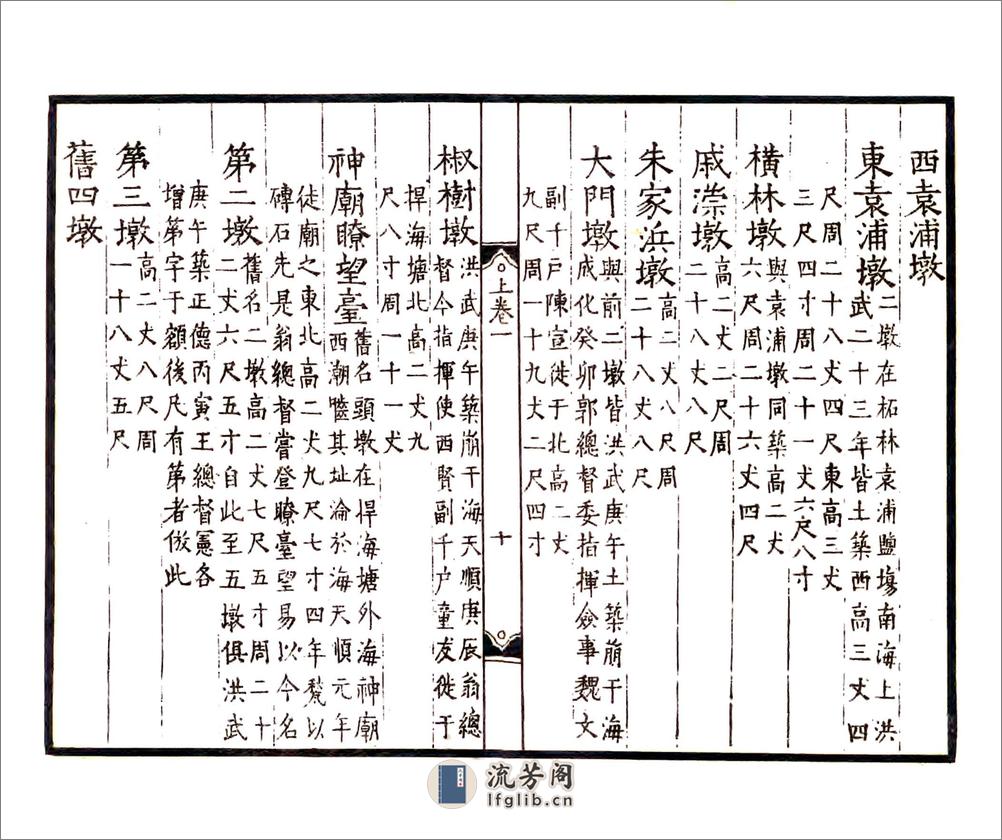 西袁浦墩
東袁浦墩
二墩在柘林袁浦鹽塲南海上洪
武二十三年皆土築西高三丈四
尺周二十八丈四尺東高三丈
三尺四寸周二十一丈六尺八寸
橫林墩
與袁浦墩同築高二丈
六尺周二十六丈四尺
戚漴墩
高二丈二尺周
二十八丈八尺
朱家浜墩
高二丈八尺周
二十八丈八尺
大門墩
與前二墩皆洪武庚午土築崩于海
成化癸卯郭總督委指揮僉事魏文
副千戶陳宣徙于北高二丈
九尺周一十九丈二尺四寸
上卷一
十
椒樹墩
洪武庚午築崩于海天順庚辰翁總
督令指揮使西賢副千户童友徙于
捍海塘北高二丈九
尺八寸周一十一丈
神廟瞭望臺
舊名頭墩在捍海塘外海神廟
西潮囓其址淪於海天順元年
徙廟之東北高二丈九尺七寸四年甃以
磚石先是翁總督嘗登瞭臺望易以今名
第二墩
舊名二墩高二丈七尺五寸周二十
二丈六尺五寸自此至五墩俱洪武
庚午築正德丙寅王總督憲各
增第字于額後凡有第者倣此
第三墩
高二丈八尺周
一十八丈五尺
舊四墩
流芳阁
lfglib.cn